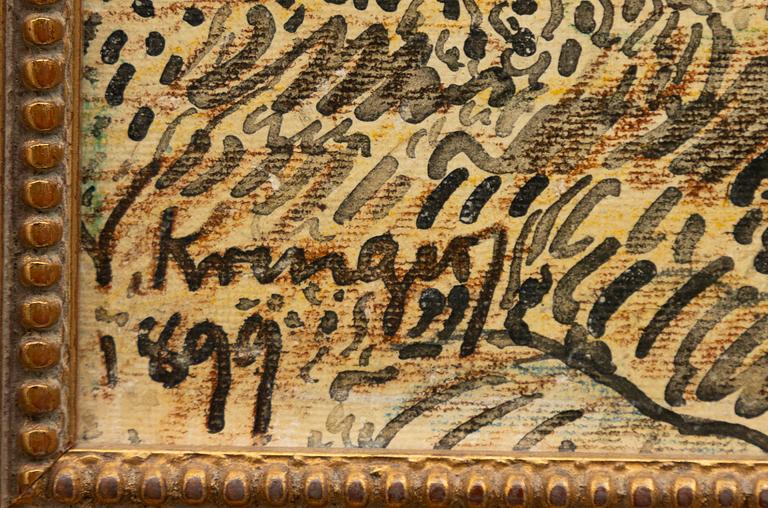 Kruger
1899